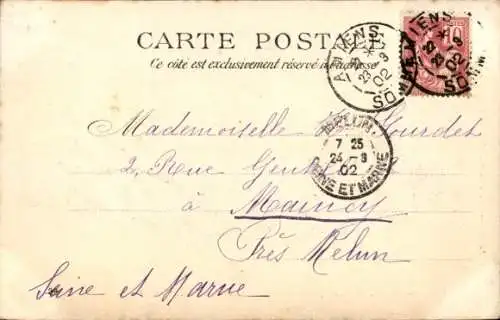 CARTE POSTALE
Ce côté est exclusivement réservé à l'adresse
AMIENS
23 9
02
SOMME
AMIENS
23 9
02
SOMME
10
Mademoiselle Gourdet
MELUN
7 25
24 - 9
02
SEINE ET MARNE
2, Rue
à Maincy
Près Melun
Seine et Marne